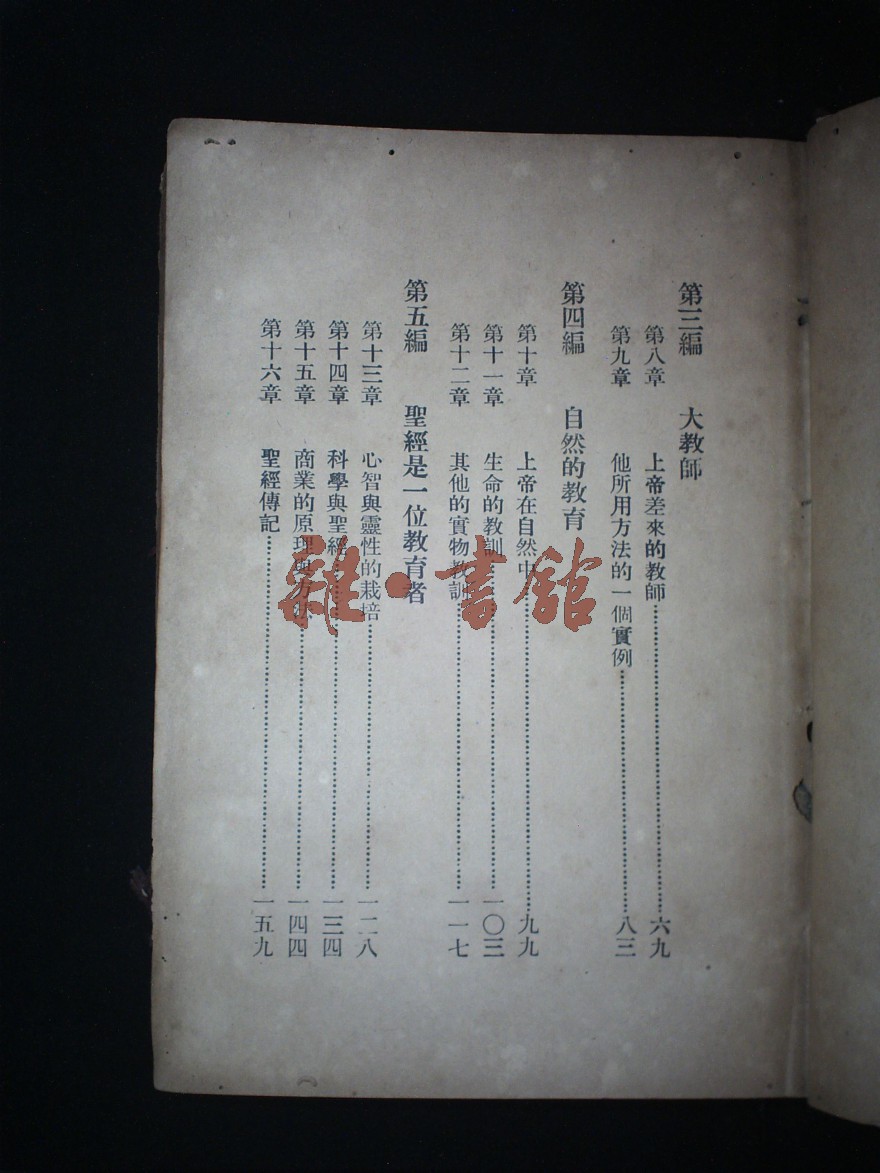 第三編 大教師
第八章 上帝差來的教師……六九
第九章 他所用方法的一個實例……八三
第四編 自然的教育
第十章 上帝在自然中……九九
第十一章 生命的教訓……一〇三
第十二章 其他的實物教訓……一一七
第五編 聖經是一位教育者
第十三章 心智與靈性的栽培……一二八
第十四章 科學與聖經……一三四
第十五章 商業的原理與方法……一四四
第十六章 聖經傳記……一五九
雜·書館